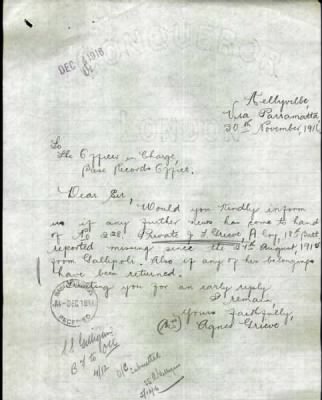 DEC 1916
Kellyville,
Via Parramatta
30th November, 1916
To
The Officer in Charge,
Base Records Office.
Dear Sir,
Would you kindly inform
us if any further news has come to hand
of No 228, Private J F Grieve, A Coy, 18th Batt
reported missing since the 27th August, 1915
from Gallipoli. Also if any of his belongings
have been returned.
Trusting you for an early reply
I remain
Yours faithfully,
Agnes Grieve
DEC 1916
RECEIVED
B F to
4/12